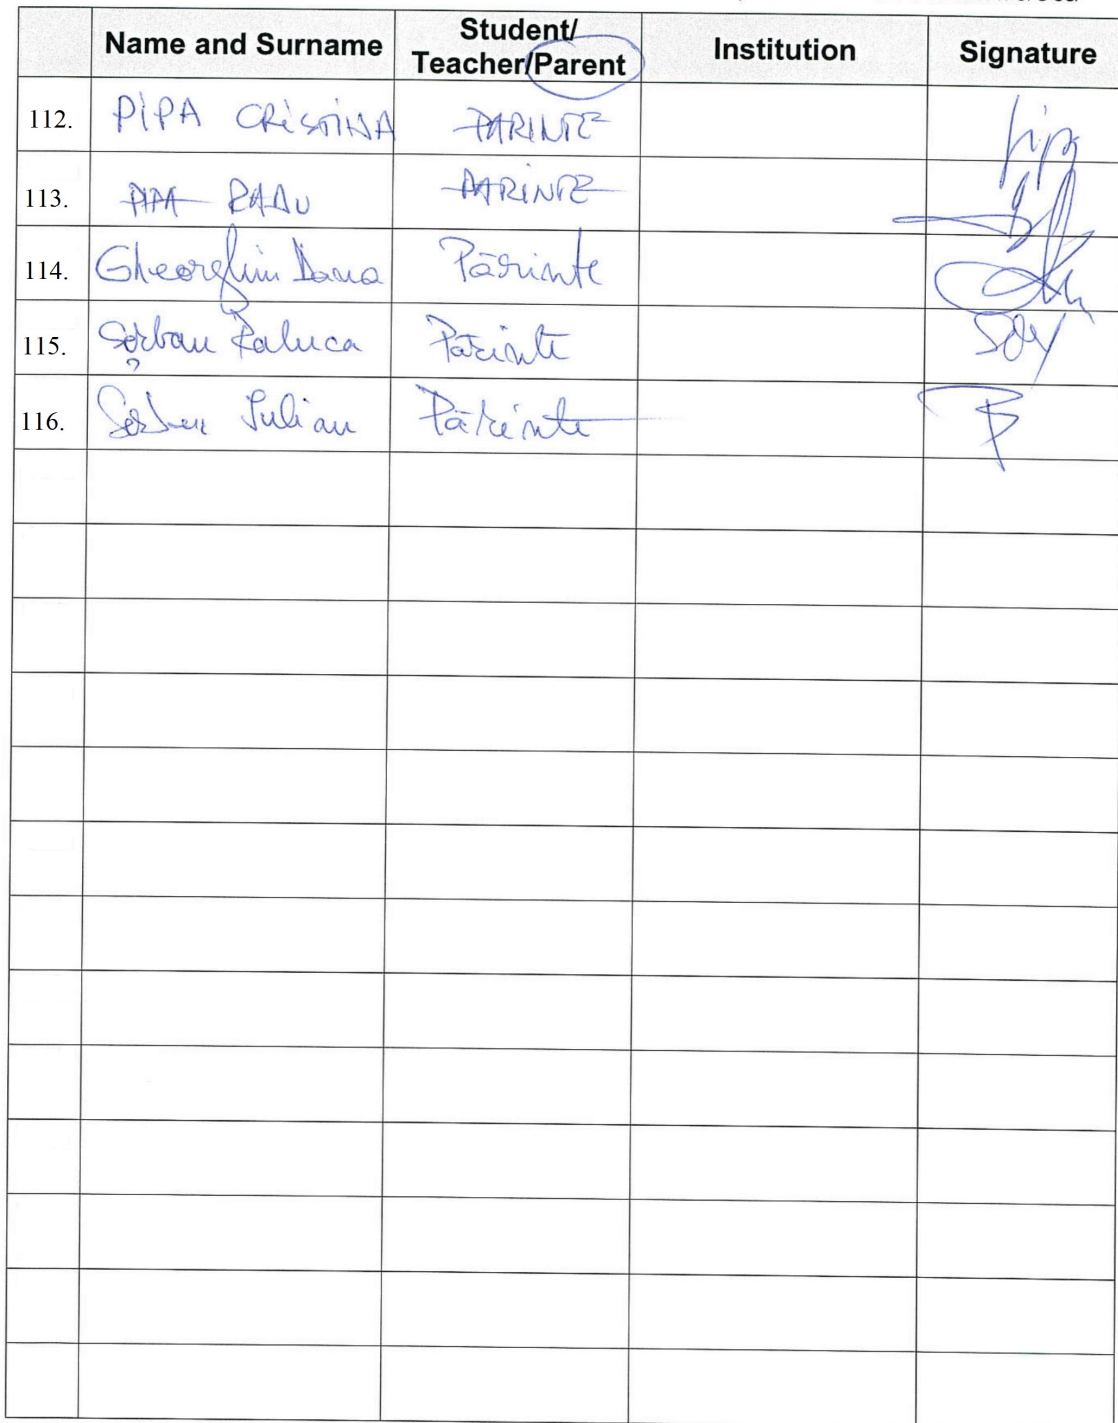 Name and Surname Student/ Teacher/Parent Institution Signature
112. PIPA CRISTINA PARINTE
113. PIPA RADU PARINTE
114. Gheorghiu Dana Părinte
115. Șerban Raluca Părinte
116. Șerban Iulian Părinte